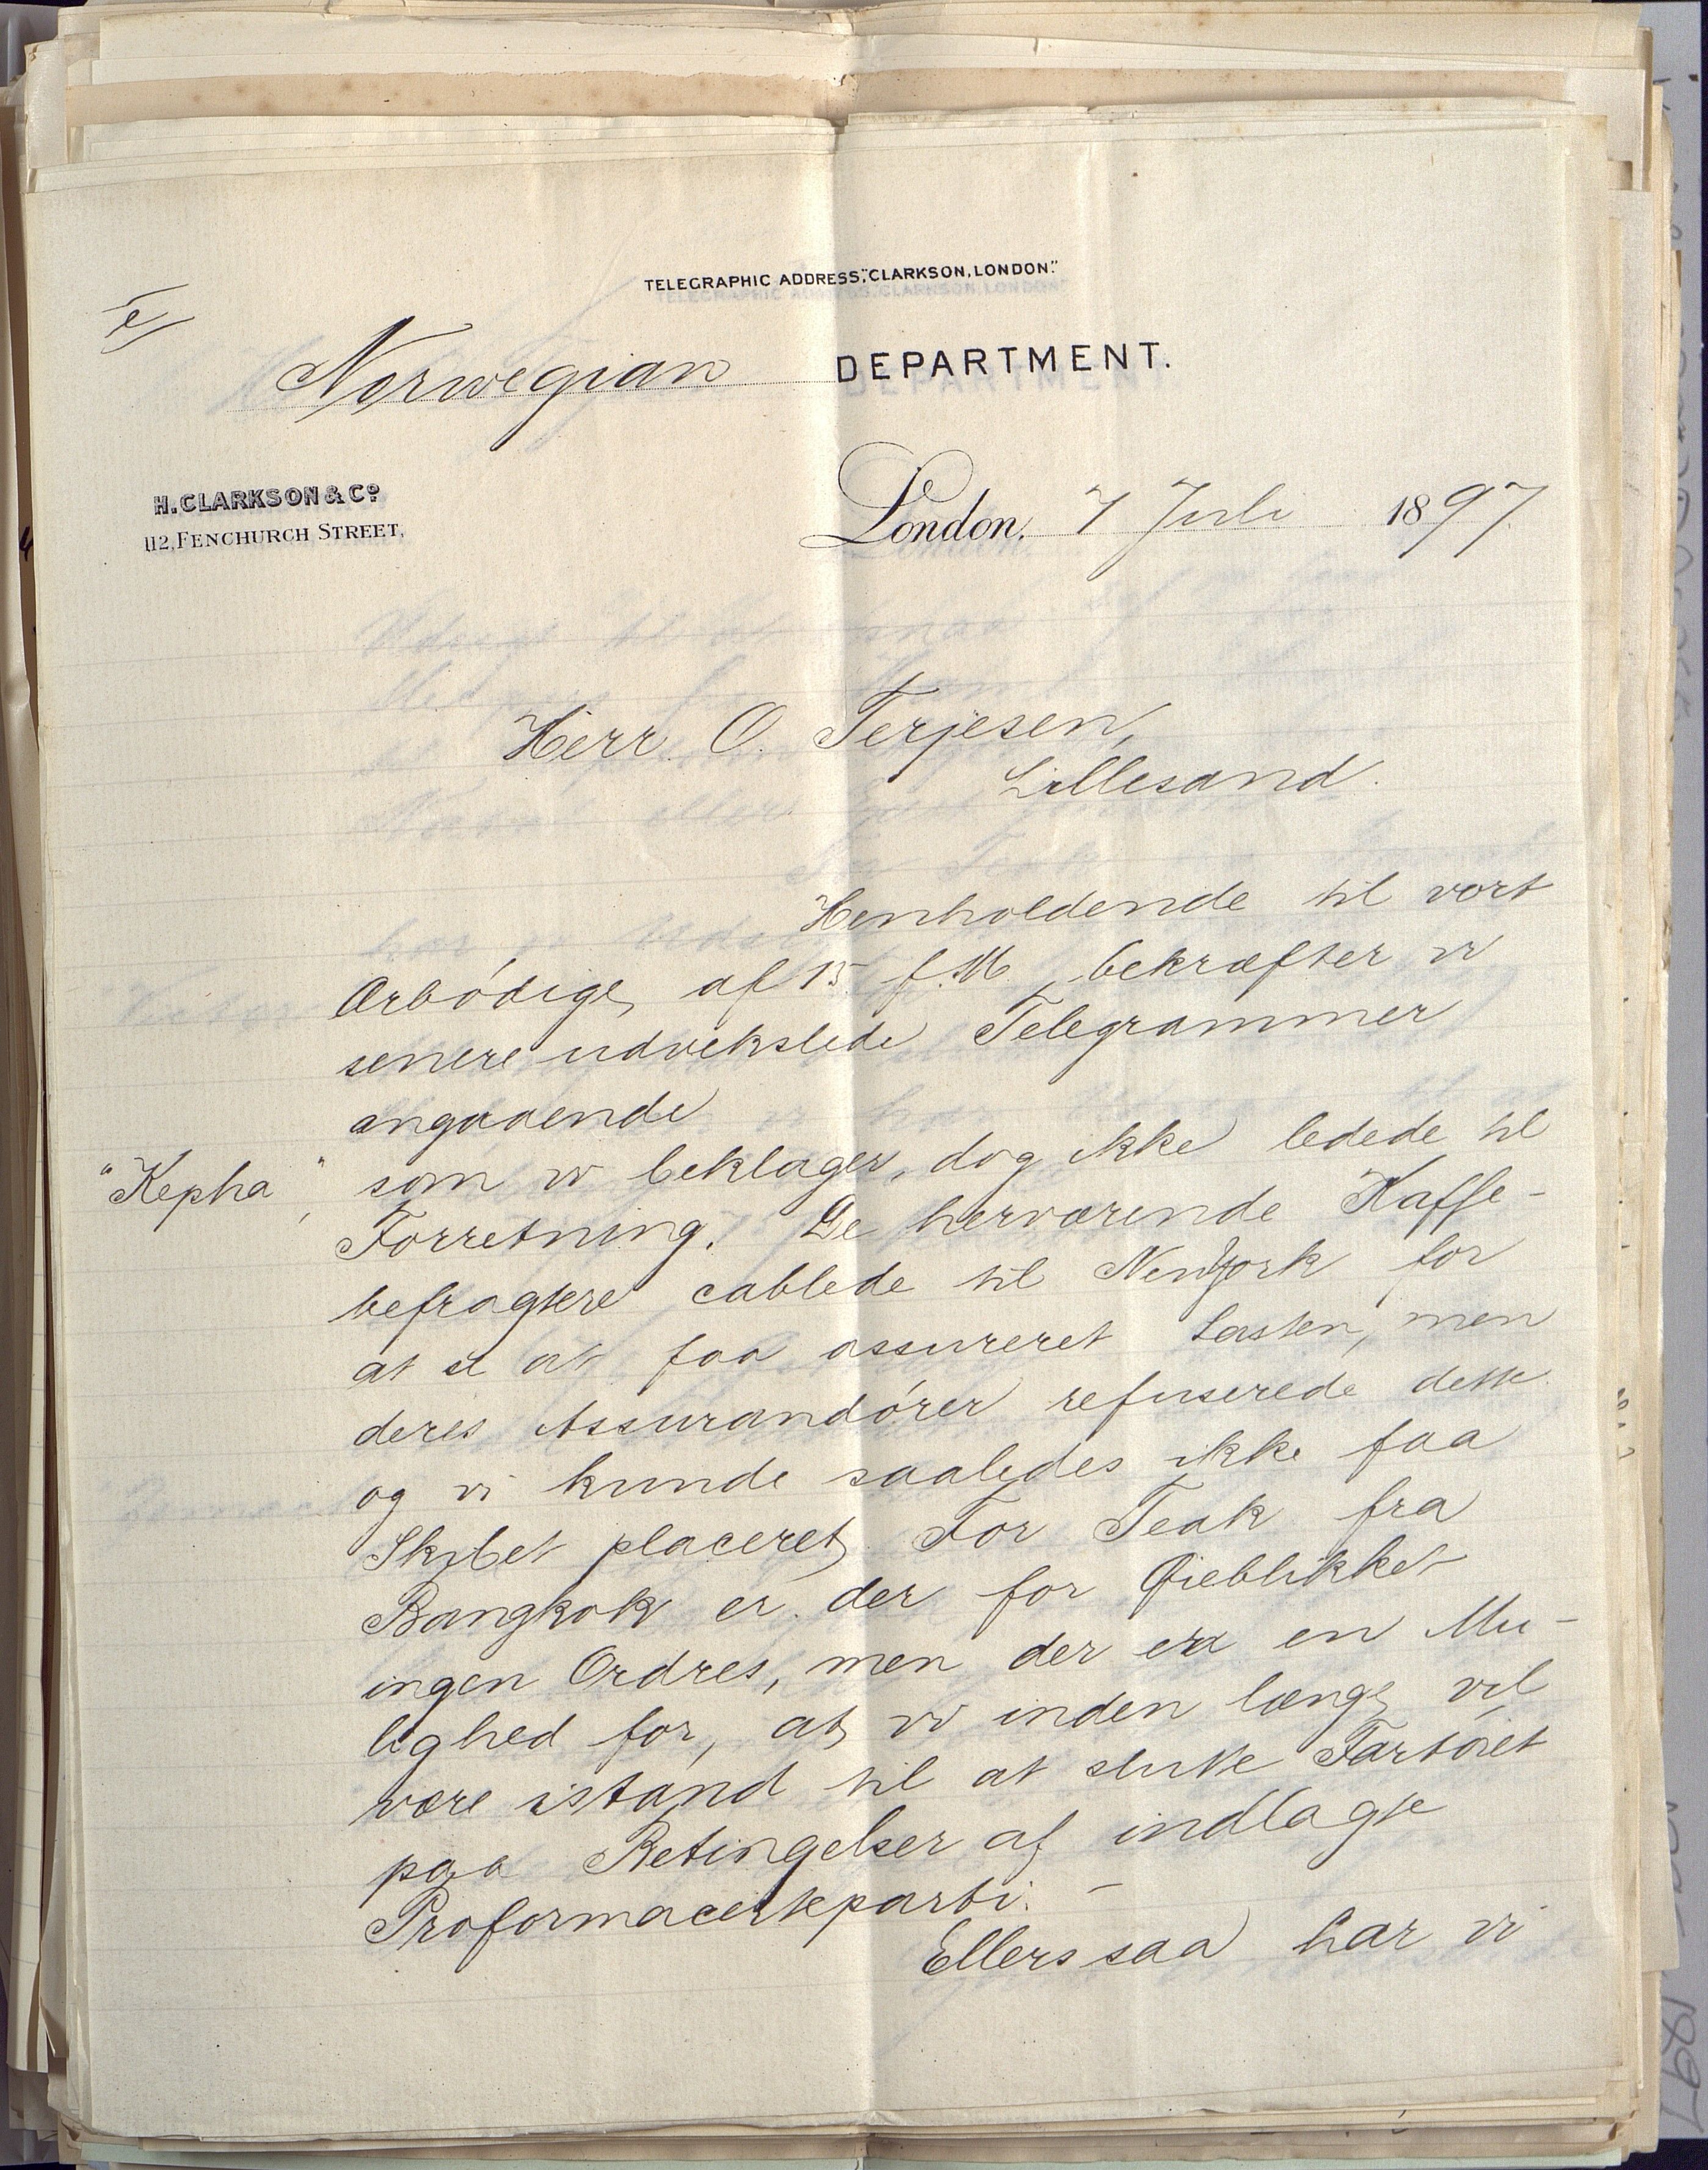 TELEGRAPHIC ADDRESS, "CLARKSON, LONDON."
Norwegian DEPARTMENT.
H. CLARKSON & Co.
112, FENCHURCH STREET,
London, 7 Juli 1897
Herr O. Terjesen,
Lillesand.
Henholdende til vort
Ærbödige af 15 f. M. bekræfter vi
senere udvekslede Telegrammer
angaaende
"Kepha", som vi beklager, dog ikke ledede til
Forretning. De herværende Kaffe-
befragtere cablede til New York for
at se at faa assureret Lasten, men
deres Assurandörer refuserede dette
og vi kunde saaledes ikke faa
Skibet placeret. For Teak fra
Bangkok er der for Øieblikket
ingen Ordres, men der er en Mu-
lighed for, at vi inden længe vil
være istand til at slutte Fartöiet
paa Betingelser af indlagte
Proformacerteparti. –
Ellers saa har vi